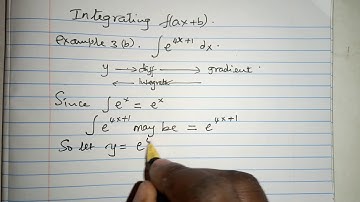 Integrating f(ax+b).
Example 3(b). ∫e^{4x+1} dx.
y —diff→ gradient.
←Integrate—
Since ∫e^x = e^x
∫e^{4x+1} may be = e^{4x+1}
So let y = e